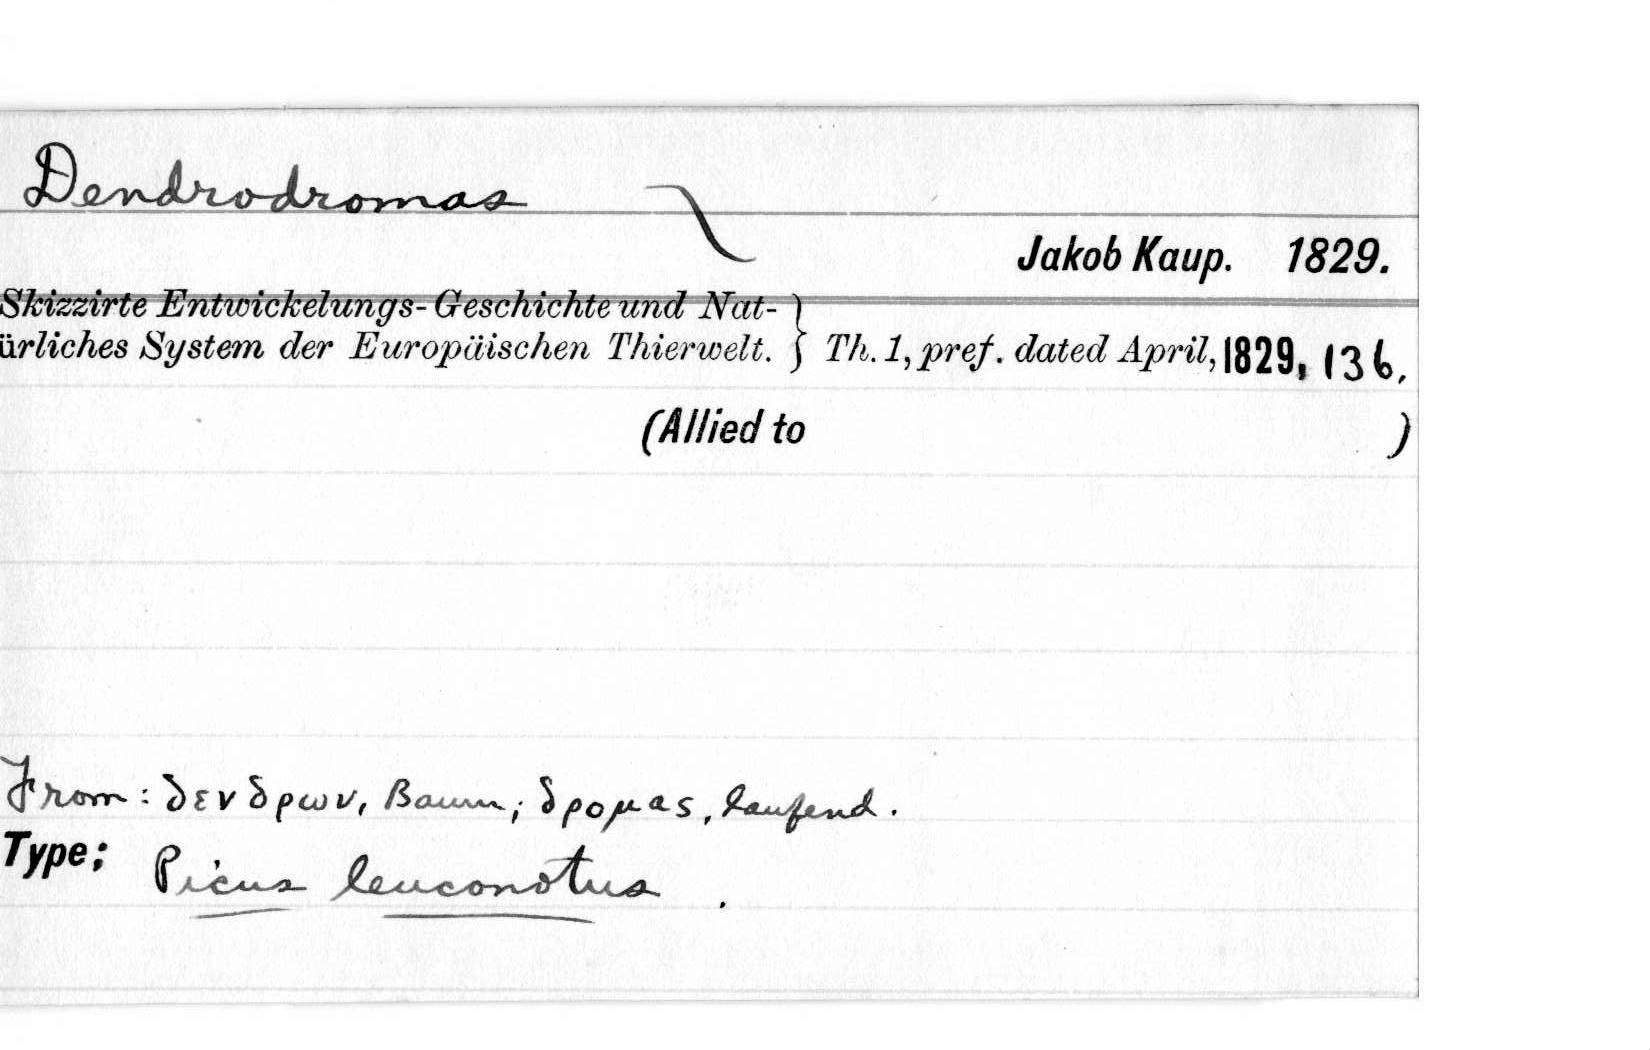 Dendrodromas
Jakob Kaup. 1829.
Skizzirte Entwickelungs-Geschichte und Nat-
ürliches System der Europäischen Thierwelt. } Th. 1, pref. dated April, 1829, 136.
(Allied to )
From: δενδρων, Baum; δρομας, laufend.
Type: Picus leuconotus.